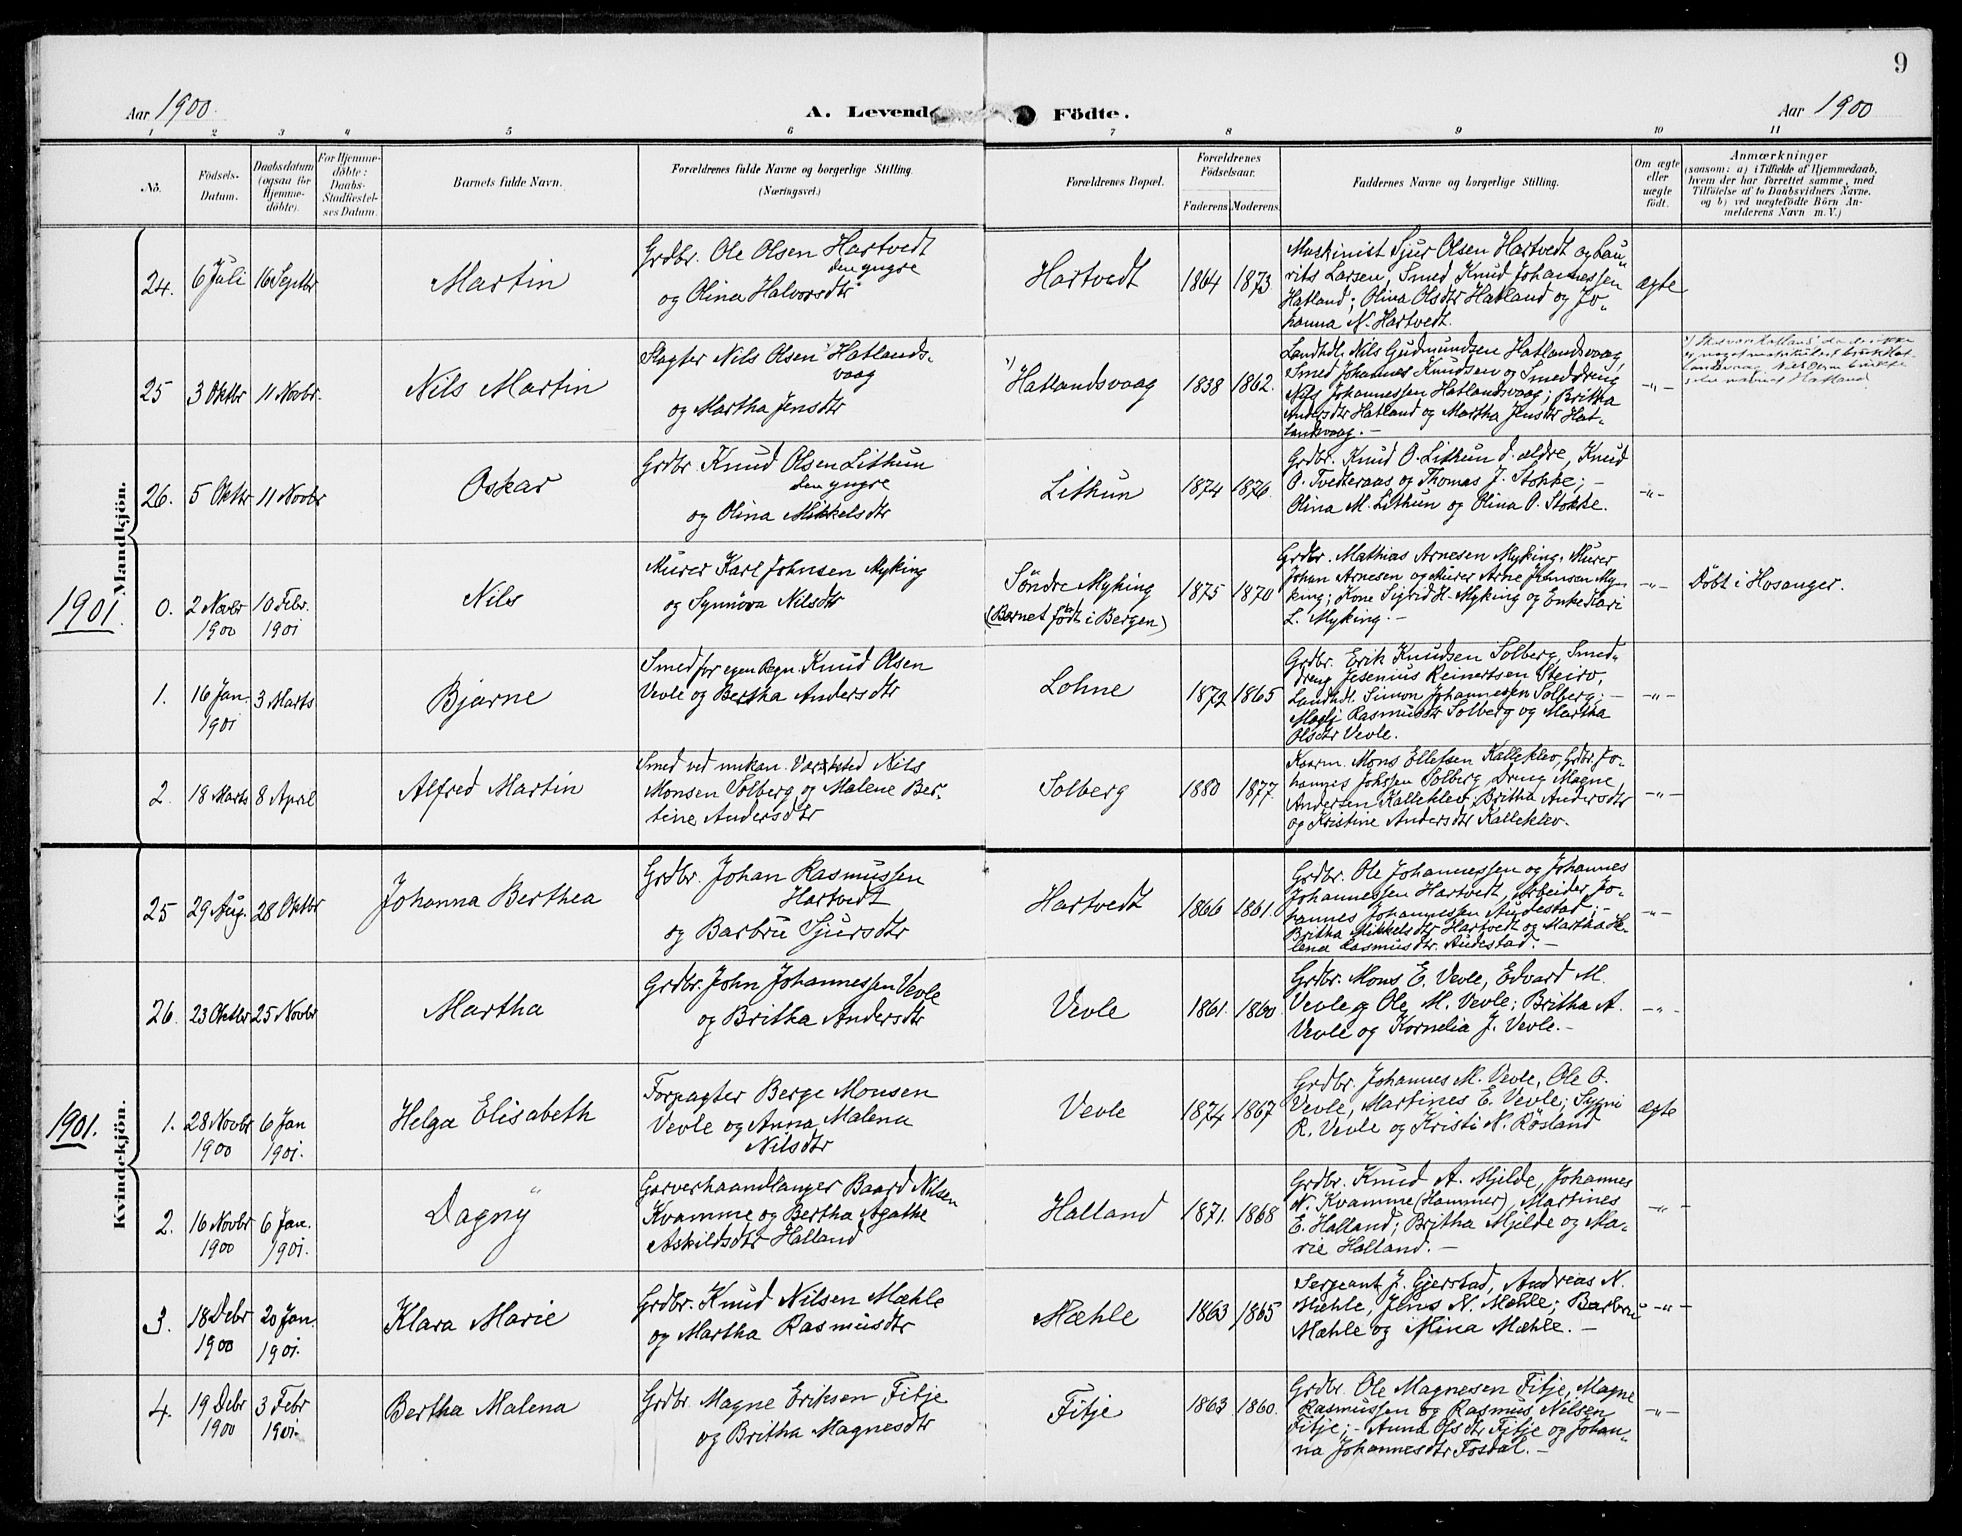 9
Aar 1900.
A. Levende
Födte.
Aar 1900
1 2 3 4 5 6 7 8 9 10 11
No.
Födsels-
Datum.
Daabsdatum
(ogsaa for
Hjemme-
döbte).
For Hjemme-
döbte:
Daabs-
Stadfæstel-
ses Datum.
Barnets fulde Navn.
Forældrenes fulde Navne og borgerlige Stilling.
(Næringsvei.)
Forældrenes Bopæl.
Forældrenes
Födselsaar.
Faderens Moderens
Faddernes Navne og borgerlige Stilling.
Om ægte
eller
uægte
födt.
Anmærkninger
(saasom: a) i Tilfælde af Hjemmedaab,
hvem der har forrettet samme, med
Tilföielse af to Daabsvidners Navne,
og b) ved uægtefödte Börn An-
melderens Navn m. V.)
Mandkjön.
24. 6 Juli 16 Septbr
Martin
Grdbr. Ole Olsen Hartvedt
den yngre
og Olina Halvorsdtr
Hartvedt
1864 1873
Maskinist Sjur Olsen Hartvedt og Lau-
rits Larsen, Smed Knud Johannessen
Hatland; Olina Olsdtr Hatland og Jo-
hanna N. Hartvedt.
ægte
25 3 Oktbr 11 Novbr.
Nils Martin
Slagter Nils Olsen Hatlands-
vaag
og Martha Jensdtr
1) Hatlandsvaag
1838 1862.
Landhdl. Nils Gudmundsen Hatlandsvaag,
Smed Johannes Knudsen og Smeddreng
Nils Johannessen Hatlandsvaag; Britha
Andersdtr Hatland og Martha Jensdtr Hat-
landsvaag. —
—"—
26. 5 Oktbr 11 Novbr
Oskar
Grdbr. Knud Olsen Lithun
den yngre
og Olina Mikkelsdtr
Lithun
1874 1876.
Grdbr. Knud O. Lithun d. ældre, Knud
O. Tvedteraas og Thomas J. Stokke; —
Olina M. Lithun og Olina O. Stokke.
—"—
1901.
0. 2 Novbr 10 Febr.
1900 1901
Nils
Murer Karl Johnsen Myking
og Synnöva Nilsdtr
Söndre Myking
(Barnet födt i Bergen)
1875 1870
Grdbr. Mathias Arnesen Myking, Murer
Johan Arnesen og Murer Arne Johnsen My-
king; Kone Sigrid H. Myking og Enke Kari
L. Myking. —
—"—
Döbt i Hosanger.
1. 16 Jan. 3 Marts
1901
Bjarne
Smed for egen Regn. Knud Olsen
Vevle og Bertha Andersdtr
Lohne
1872 1865
Grdbr. Erik Knudsen Solberg, Smed-
dreng Jesenius Reinertsen Steiro,
Landhdl. Simon Johannessen Solberg; —
Magli Rasmusdtr Solberg og Martha
Olsdtr Vevle.
—"—
2. 18 Marts 8 April
Alfred Martin
Smed ved mekan. Værksted Nils
Monsen Solberg og Malene Ber-
tine Andersdtr
Solberg
1880 1877.
Kaarm. Mons Ellefsen Kalleklev, Grdbr. Jo-
hannes Johssen Solberg, Dreng Magne
Andersen Kalleklev; Britha Andersdtr
og Kristine Andersdtr Kalleklev.
—"—
Kvindekjön.
25 29 Aug. 28 Oktbr
Johanna Berthea
Grdbr. Johan Rasmussen
Hartvedt
og Barbru Sjursdtr
Hartvedt
1866 1861.
Grdbr. Ole Johannessen og Johannes
Johannessen Hartvedt, Arbeider Jo-
hannes Johannessen Audestad; —
Britha Mikkelsdtr Hartvedt og Martha He-
lena Rasmusdtr. Audestad. —
—"—
26. 23 Oktbr 25 Novbr
Martha
Grdbr. John Johannessen Vevle
og Britha Andersdtr
Vevle
1861. 1860
Grdbr. Mons E. Vevle, Edvard M.
Vevle og Ole M. Vevle; Britha A.
Vevle og Kornelia J. Vevle. —
—"—
1901.
1. 28 Novbr 6 Jan
1900 1901.
Helga Elisabeth
Forpagter Berge Monsen
Vevle og Anna Malena
Nilsdtr
Vevle
1874 1867
Grdbr. Johannes M. Vevle, Ole O.
Vevle, Martines E. Vevle; Sygni
R. Vevle og Kristi N. Rösland
ægte
2. 16 Novbr 6 Jan.
1900 1901.
Dagny
Garverhaandlanger Baard Nilsen
Kvamme og Bertha Agathe
Askildsdtr Halland
Halland
1871. 1868
Grdbr. Knud A. Mjelde, Johannes
N. Kvamme (Hammer), Martines
E. Halland; Britha Mjelde og Ma-
rie Halland. —
—"—
3. 18 Debr 20 Jan.
1900 1901.
Klara Marie
Grdbr. Knud Nilsen Mæhle
og Martha Rasmusdtr
Mæhle
1863 1865
Sergeant J. Gjerstad, Andreas N.
Mæhle, Jens N. Mæhle; Barbru
Mæhle og Mina Mæhle. —
—"—
4. 19 Debr 3 Febr
1900 1901.
Bertha Malena
Grdbr. Magne Eriksen Fitje
og Britha Magnesdtr
Fitje
1863 1860.
Grdbr. Ole Magnesen Fitje, Magne
Rasmussen og Rasmus Nilsen
Fitje; — Anna Olsdtr Fitje og Johan-
na Johannesdtr Fosdal. —
—"—